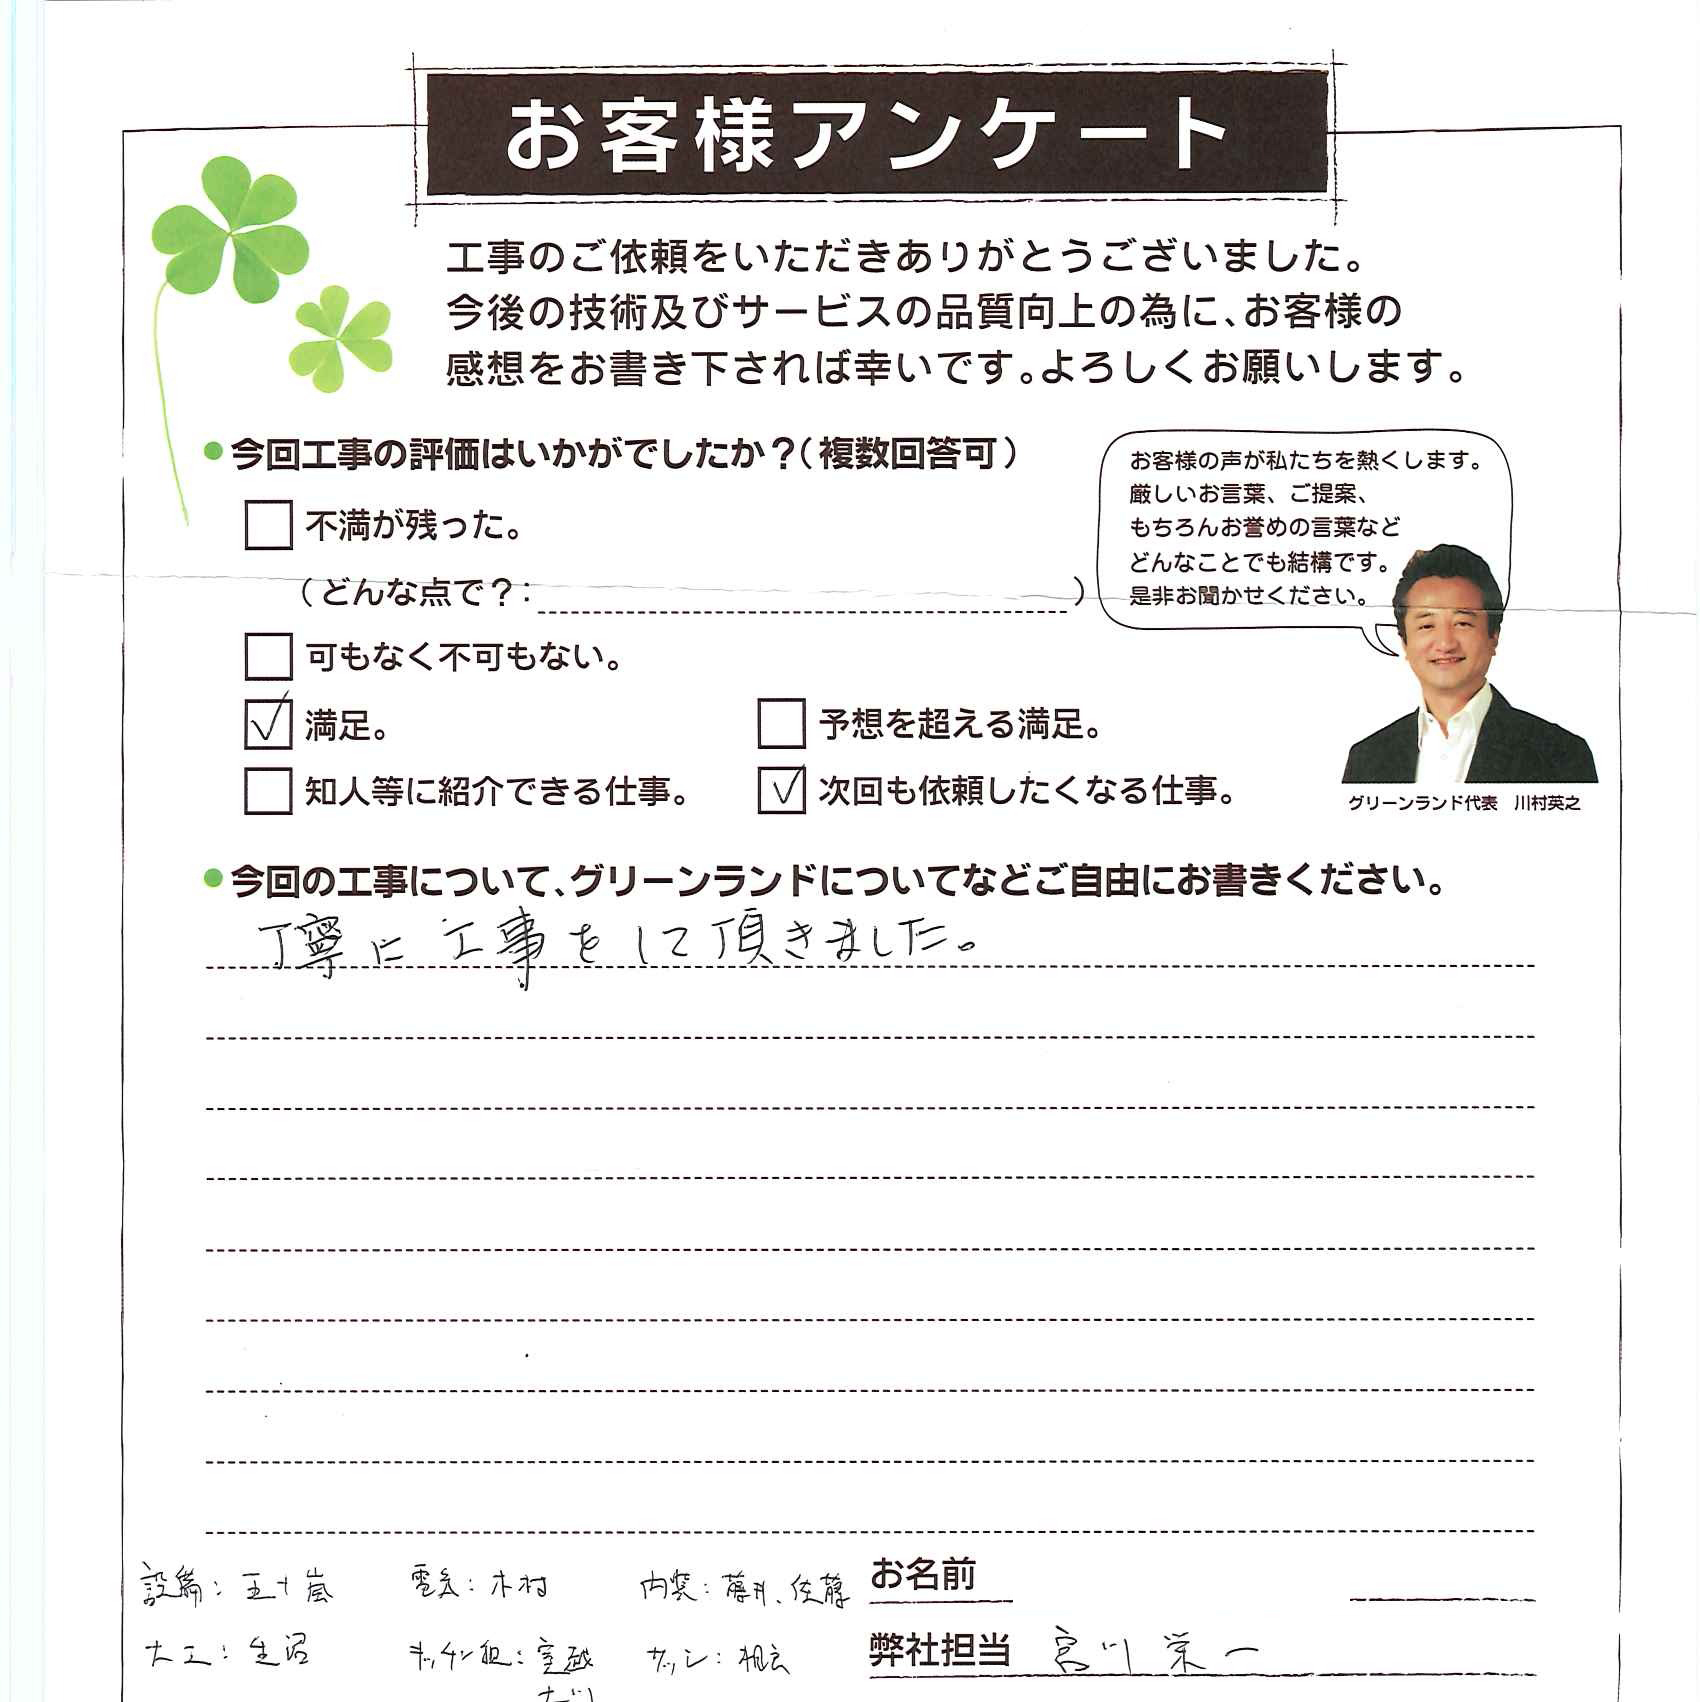 お客様アンケート
工事のご依頼をいただきありがとうございました。
今後の技術及びサービスの品質向上の為に、お客様の
感想をお書き下されば幸いです。よろしくお願いします。
●今回工事の評価はいかがでしたか？（複数回答可）
お客様の声が私たちを熱くします。
厳しいお言葉、ご提案、
もちろんお誉めの言葉など
どんなことでも結構です。
是非お聞かせください。
不満が残った。
（どんな点で？： ）
可もなく不可もない。
満足。 予想を超える満足。
知人等に紹介できる仕事。 次回も依頼したくなる仕事。
グリーンランド代表 川村英之
●今回の工事について、グリーンランドについてなどご自由にお書きください。
丁寧に工事をして頂きました。
設備：五十嵐 電気：木村 内装：藤井、佐藤 お名前
大工：生沼 キッチン組：室越 サッシ： 弊社担当 宮川栄一